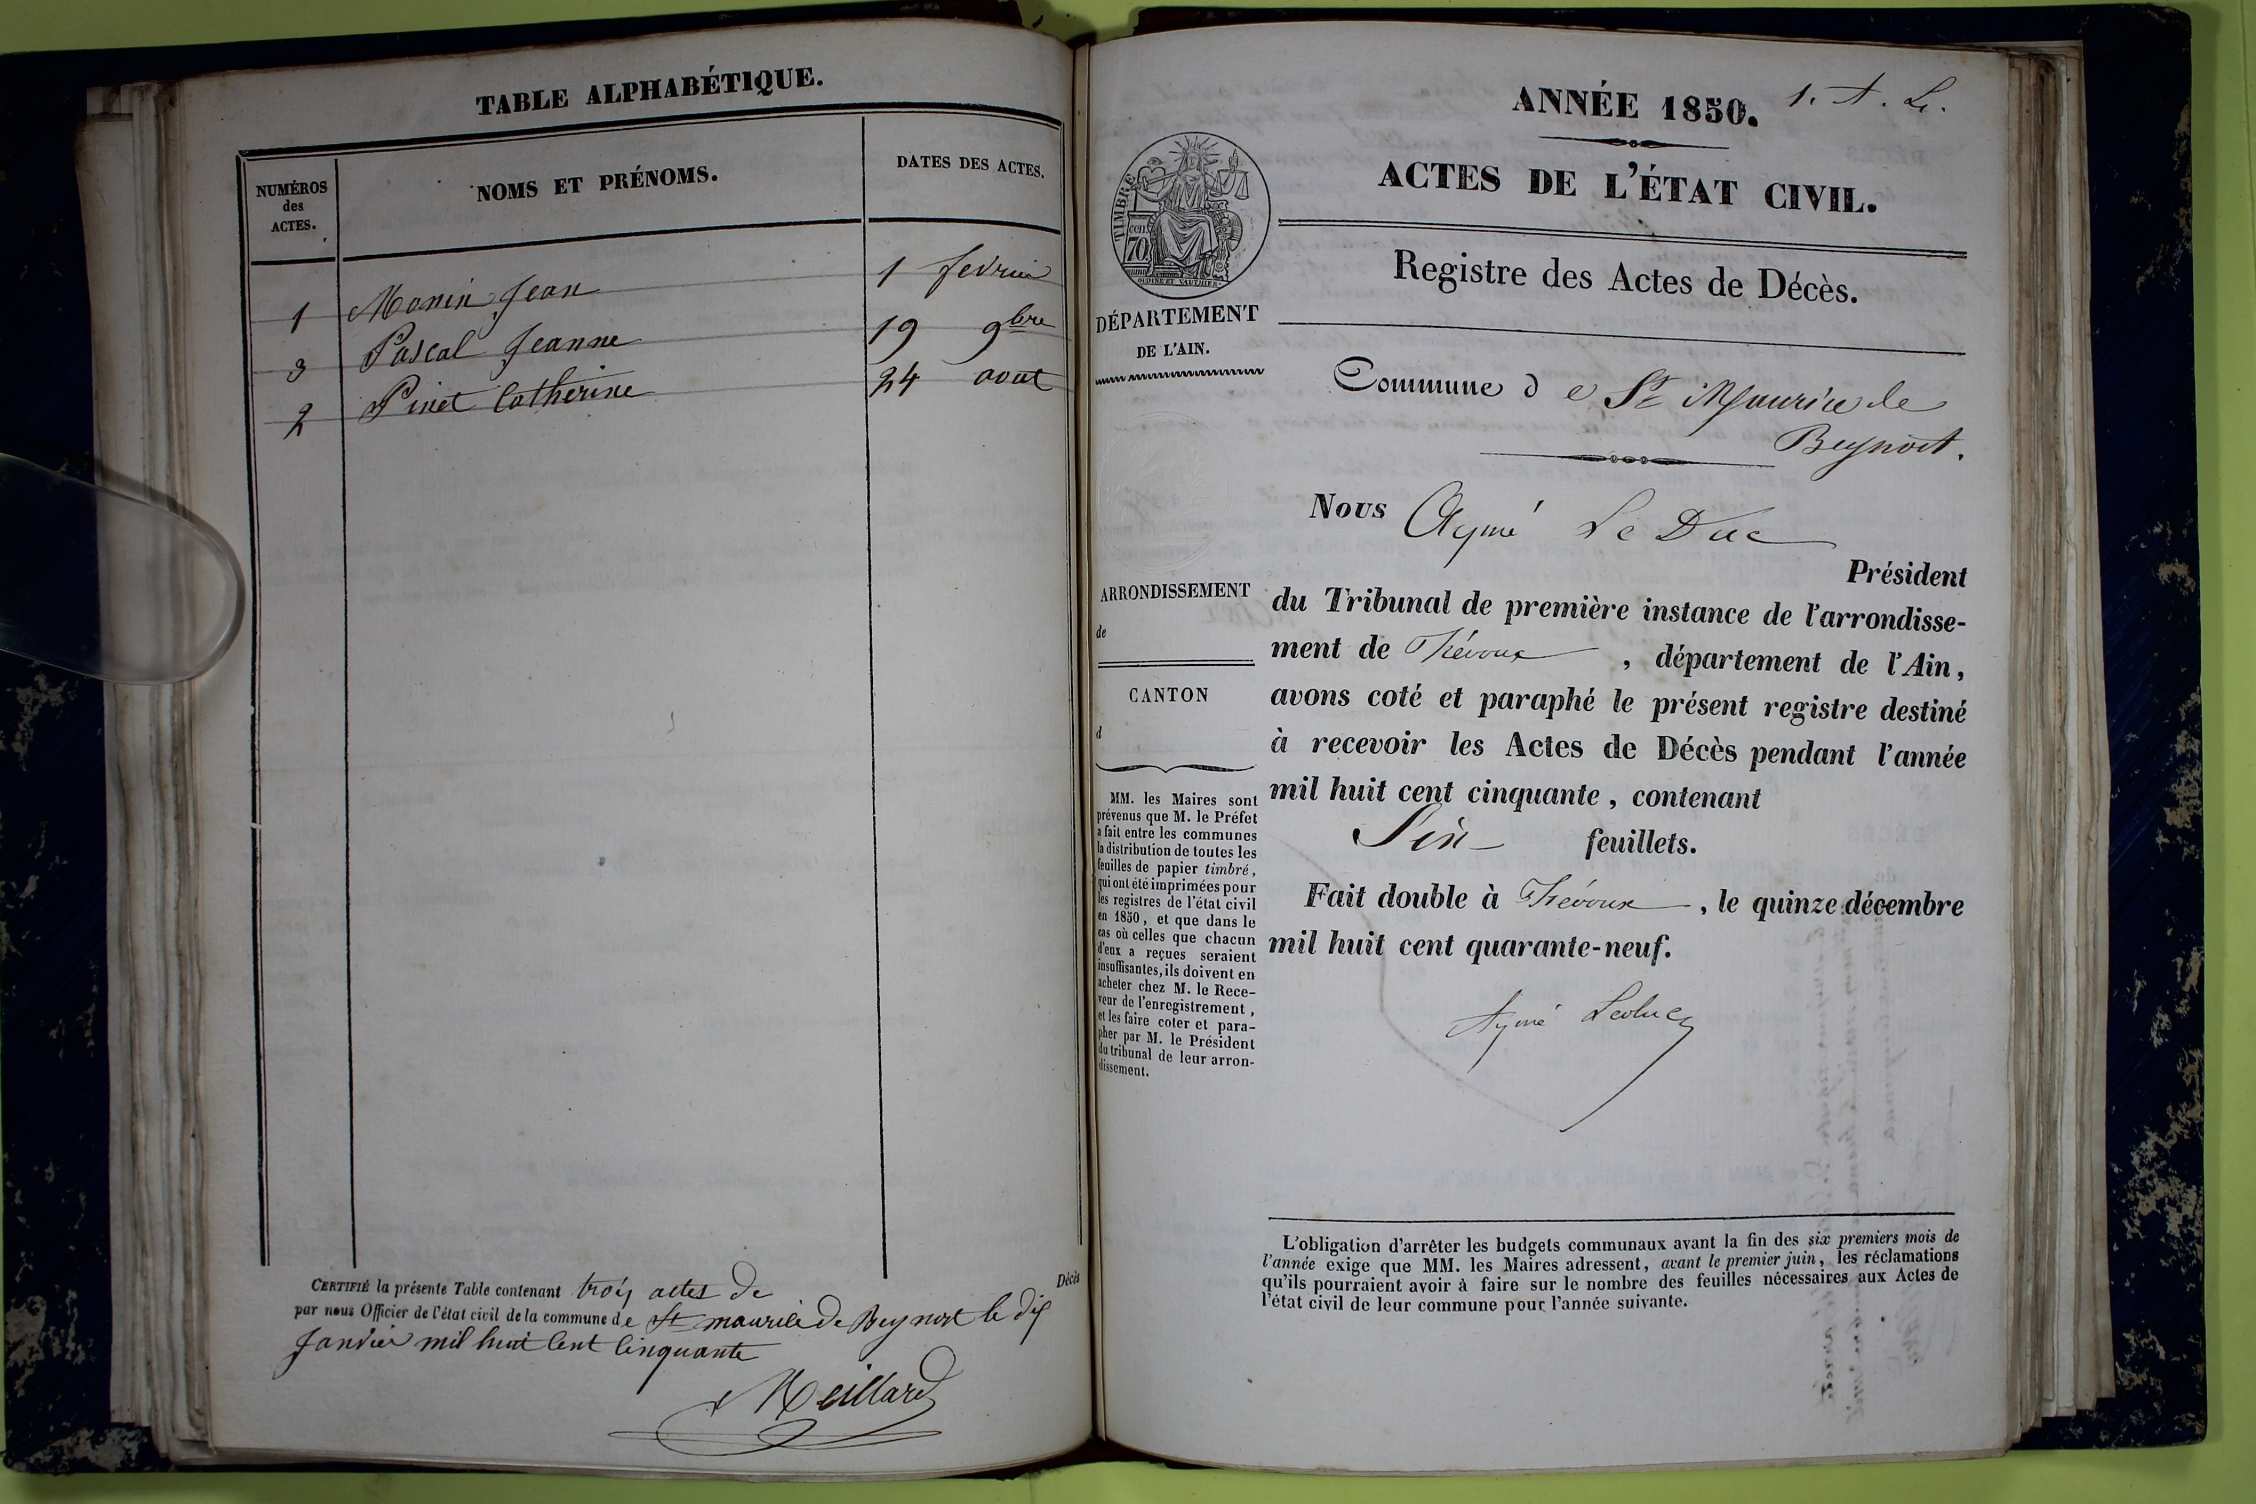 TABLE ALPHABÉTIQUE.
NUMÉROS des ACTES.
NOMS ET PRÉNOMS.
DATES DES ACTES.
1 Monin Jean 1 fevrier
3 Pascal Jeanne 19 9bre
2 Pinet Catherine 24 aout
CERTIFIÉ la présente Table contenant trois actes de Décès
par nous Officier de l'état civil de la commune de St maurice de Beynost le dix
Janvier mil huit cent cinquante
Meillard
ANNÉE 1850. 1. A. L.
ACTES DE L'ÉTAT CIVIL.
TIMBRE
70
cen
OUDINÉ ET VAUTHIER
Registre des Actes de Décès.
DÉPARTEMENT
DE L'AIN.
Commune de St Maurice de
Beynost.
Nous Aymé Le Duc
Président
du Tribunal de première instance de l'arrondisse-
ment de Trévoux, département de l'Ain,
avons coté et paraphé le présent registre destiné
à recevoir les Actes de Décès pendant l'année
mil huit cent cinquante, contenant
Six feuillets.
Fait double à Trévoux, le quinze décembre
mil huit cent quarante-neuf.
Aymé Leduc
ARRONDISSEMENT
de
CANTON
d
MM. les Maires sont
prévenus que M. le Préfet
a fait entre les communes
la distribution de toutes les
feuilles de papier timbré,
qui ont été imprimées pour
les registres de l'état civil
en 1850, et que dans le
cas où celles que chacun
d'eux a reçues seraient
insuffisantes, ils doivent en
acheter chez M. le Rece-
veur de l'enregistrement,
et les faire coter et para-
pher par M. le Président
du tribunal de leur arron-
dissement.
L'obligation d'arrêter les budgets communaux avant la fin des six premiers mois de
l'année exige que MM. les Maires adressent, avant le premier juin, les réclamations
qu'ils pourraient avoir à faire sur le nombre des feuilles nécessaires aux Actes de
l'état civil de leur commune pour l'année suivante.